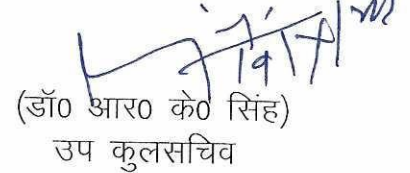 (डॉ0 आर0 के0 सिंह)
उप कुलसचिव